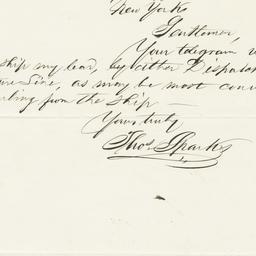 New York
Gentlemen,
Your telegram
ship my lead, by either Dispatch
Line, as may be most
from the Ship —
Yours truly
Thos Sparks